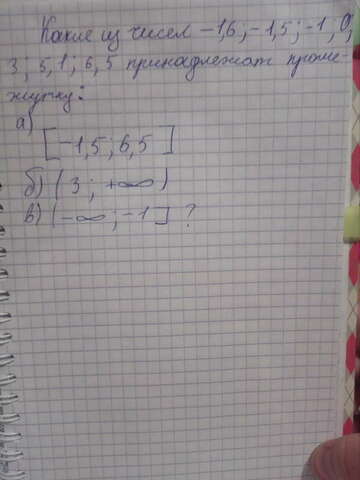 Какие из чисел -1,6; -1,5; -1; 0;
3; 5,1; 6,5 принадлежат проме-
жутку:
а)
[-1,5; 6,5]
б) (3; +∞)
в) (-∞; -1] ?